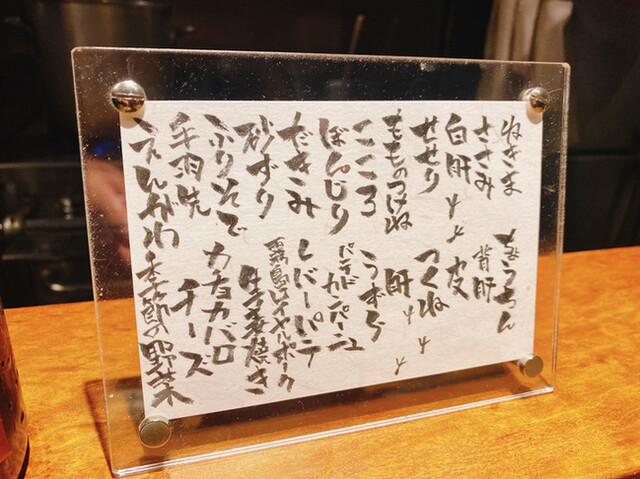 ねぎま
ささみ
白肝
せせり
もものつけね
こころ
ぼんじり
だきみ
砂ずり
ふりそで
手羽先
えんがわ
ちょうちん
背肝
皮
つくね
肝
うずら
パテド
カンパーニュ
レバーパテ
霧島ロイヤルポーク
生麩焼き
カチョカバロ
チーズ
季節の野菜